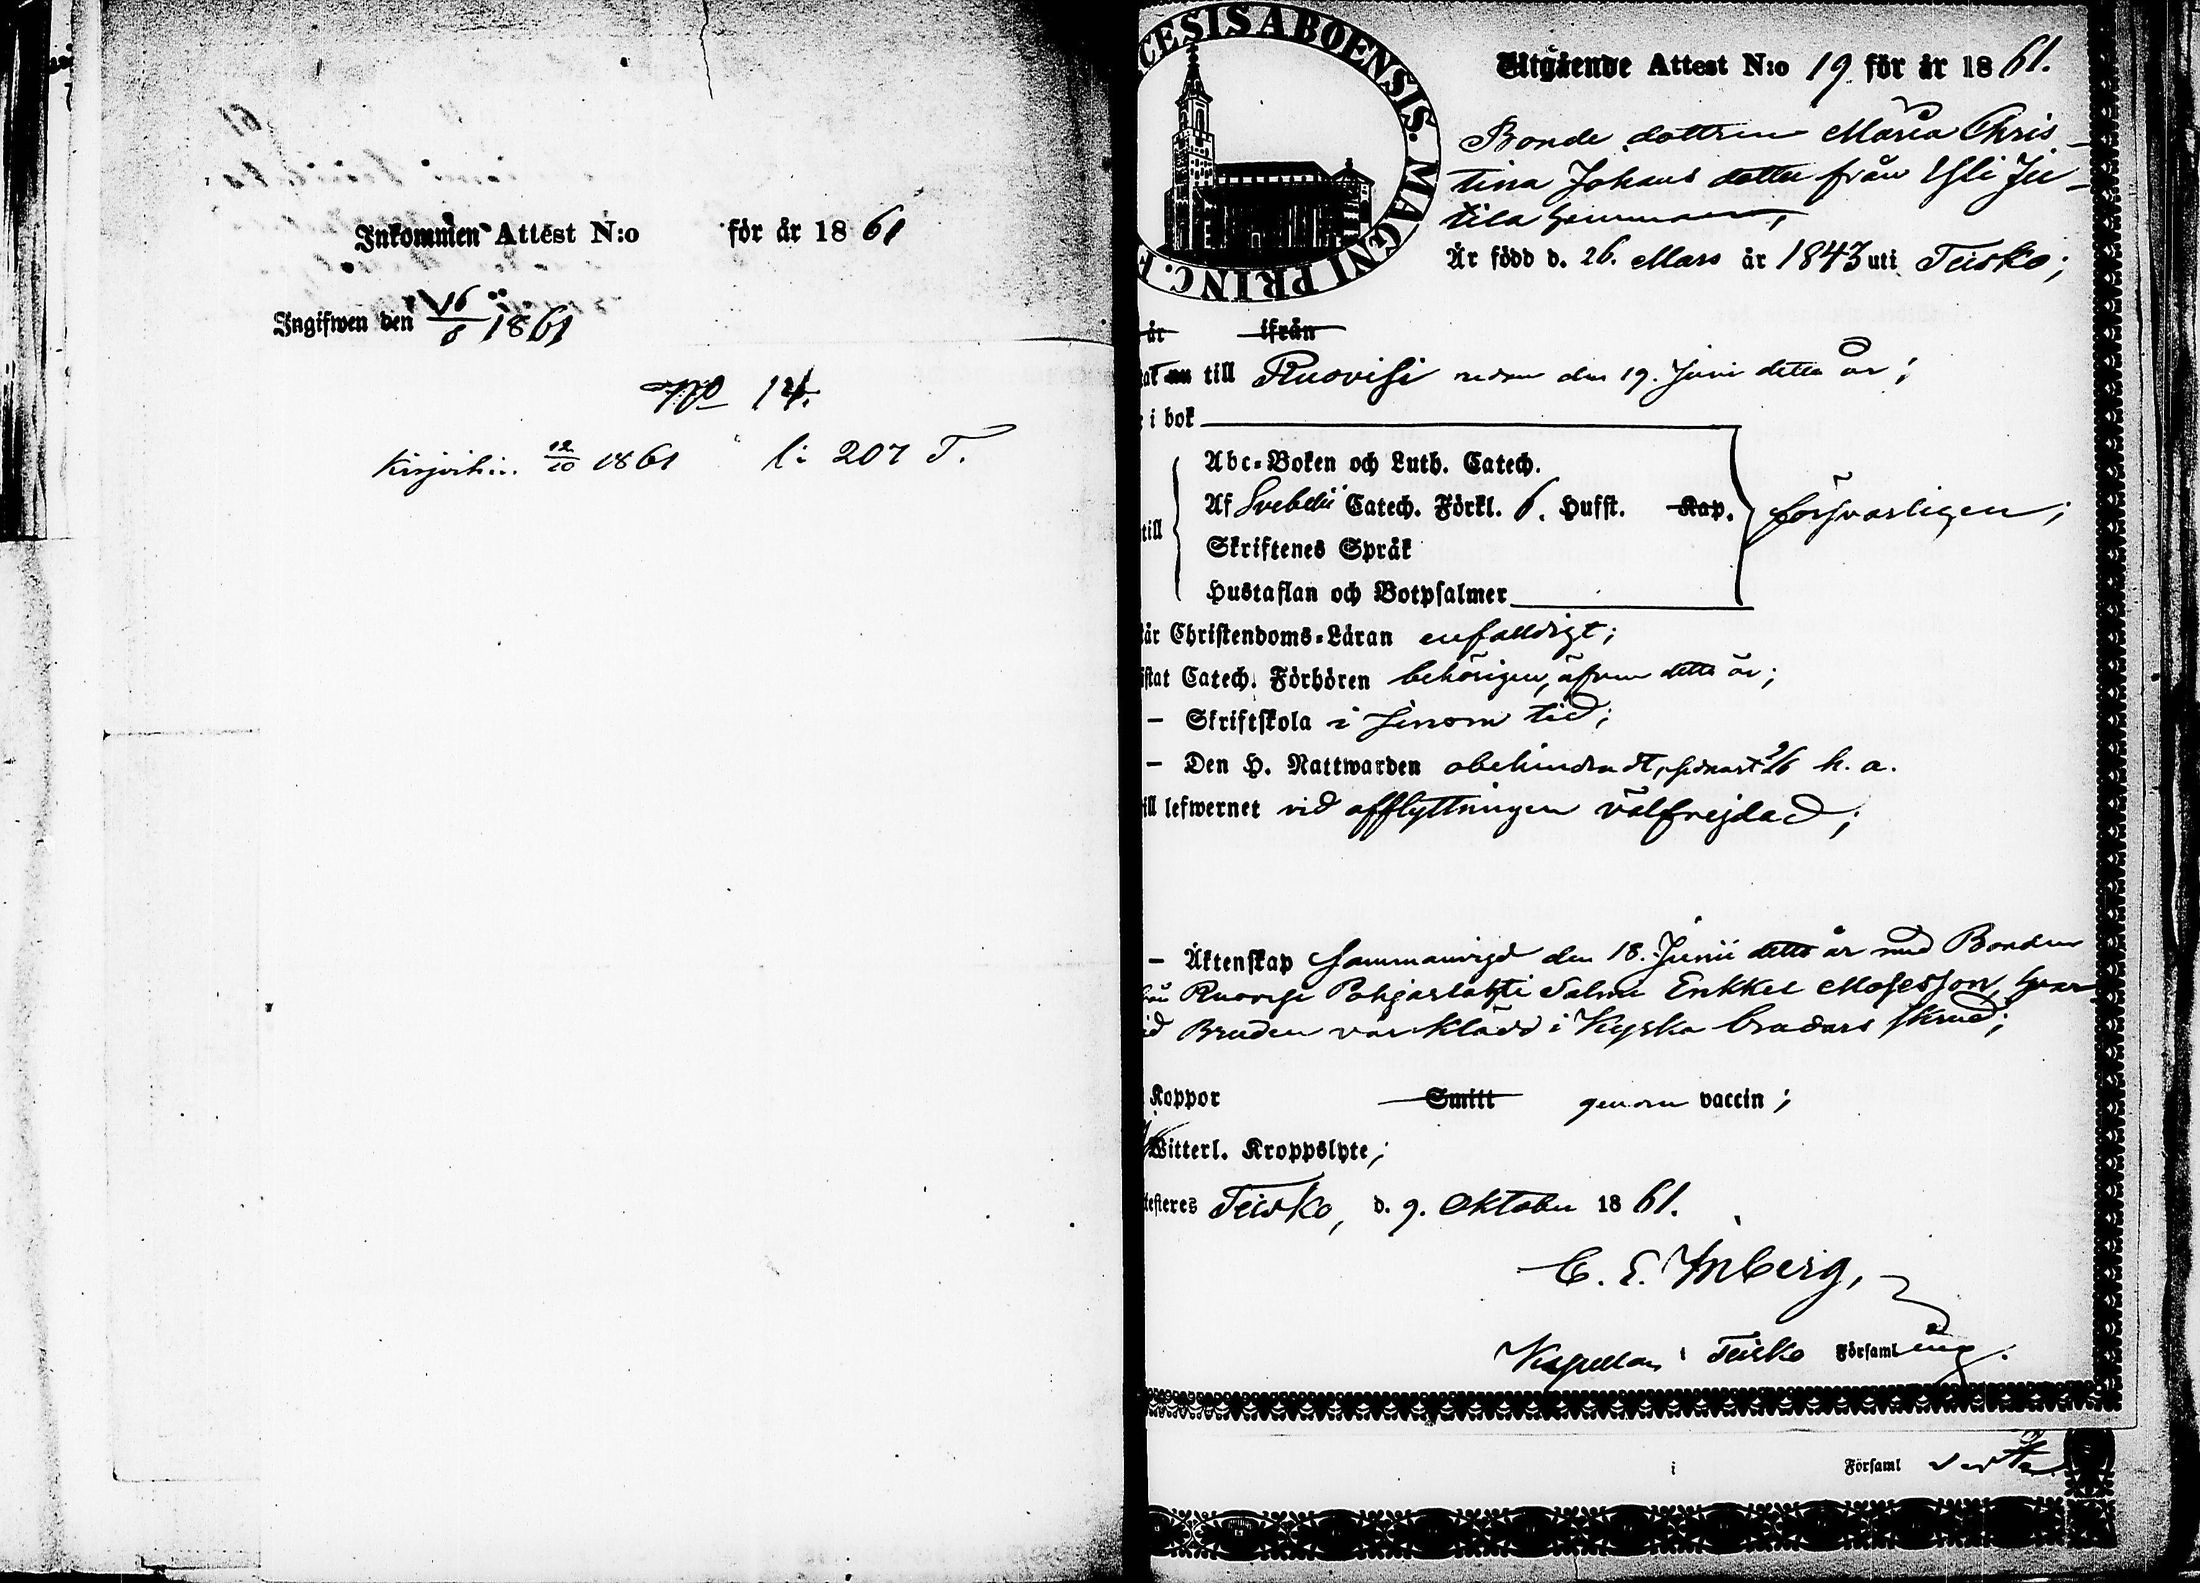 Inkommen Attest N:o för år 1861
Ingifwen den 16/8 1861
No 14.
Kirjoih:. 12/10 1861 l: 207 T.
CESIS ABOENSIS. MAGNI PRINC. F
Utgående Attest N:o 19 för år 1861.
Bonde dottren Maria Chris-
tina Johans dotter från Yli Ju-
tila hemman,
Är född d. 26. Mars år 1843 uti Teisko;
är ifrån
at nu till Ruovisi redan den 19. Juni detta år;
e i bok
Abc-Boken och Luth. Catech.
Af Svebelii Catech. Förkl. 6. Hufst. Kap. försvarligen;
till
Skriftenes Språk
Hustaflan och Botpsalmer
tår Christendoms-Läran enfalldigt;
istat Catech. Förhören behörigen, äfven detta år;
– Skriftskola i sinom tid;
– Den H. Nattwarden obehindradt, sednast 2/6 h. a.
ill lefwernet vid afflyttningen välfrejdad;
– Äktenskap sammanvigd den 18. Junii detta år med Bonden
från Ruovesi Pohjaslahti Salmi Erkkel Mosesson, hvar
id Bruden var klädd i Kyska brudars skrud;
Koppor Smitt genom vaccin;
Witterl. Kroppslyte;
testeres Teisko, d. 9. Oktober 1861.
C. E. Inberg,
Kapellan i Teisko Församling.
i Församl